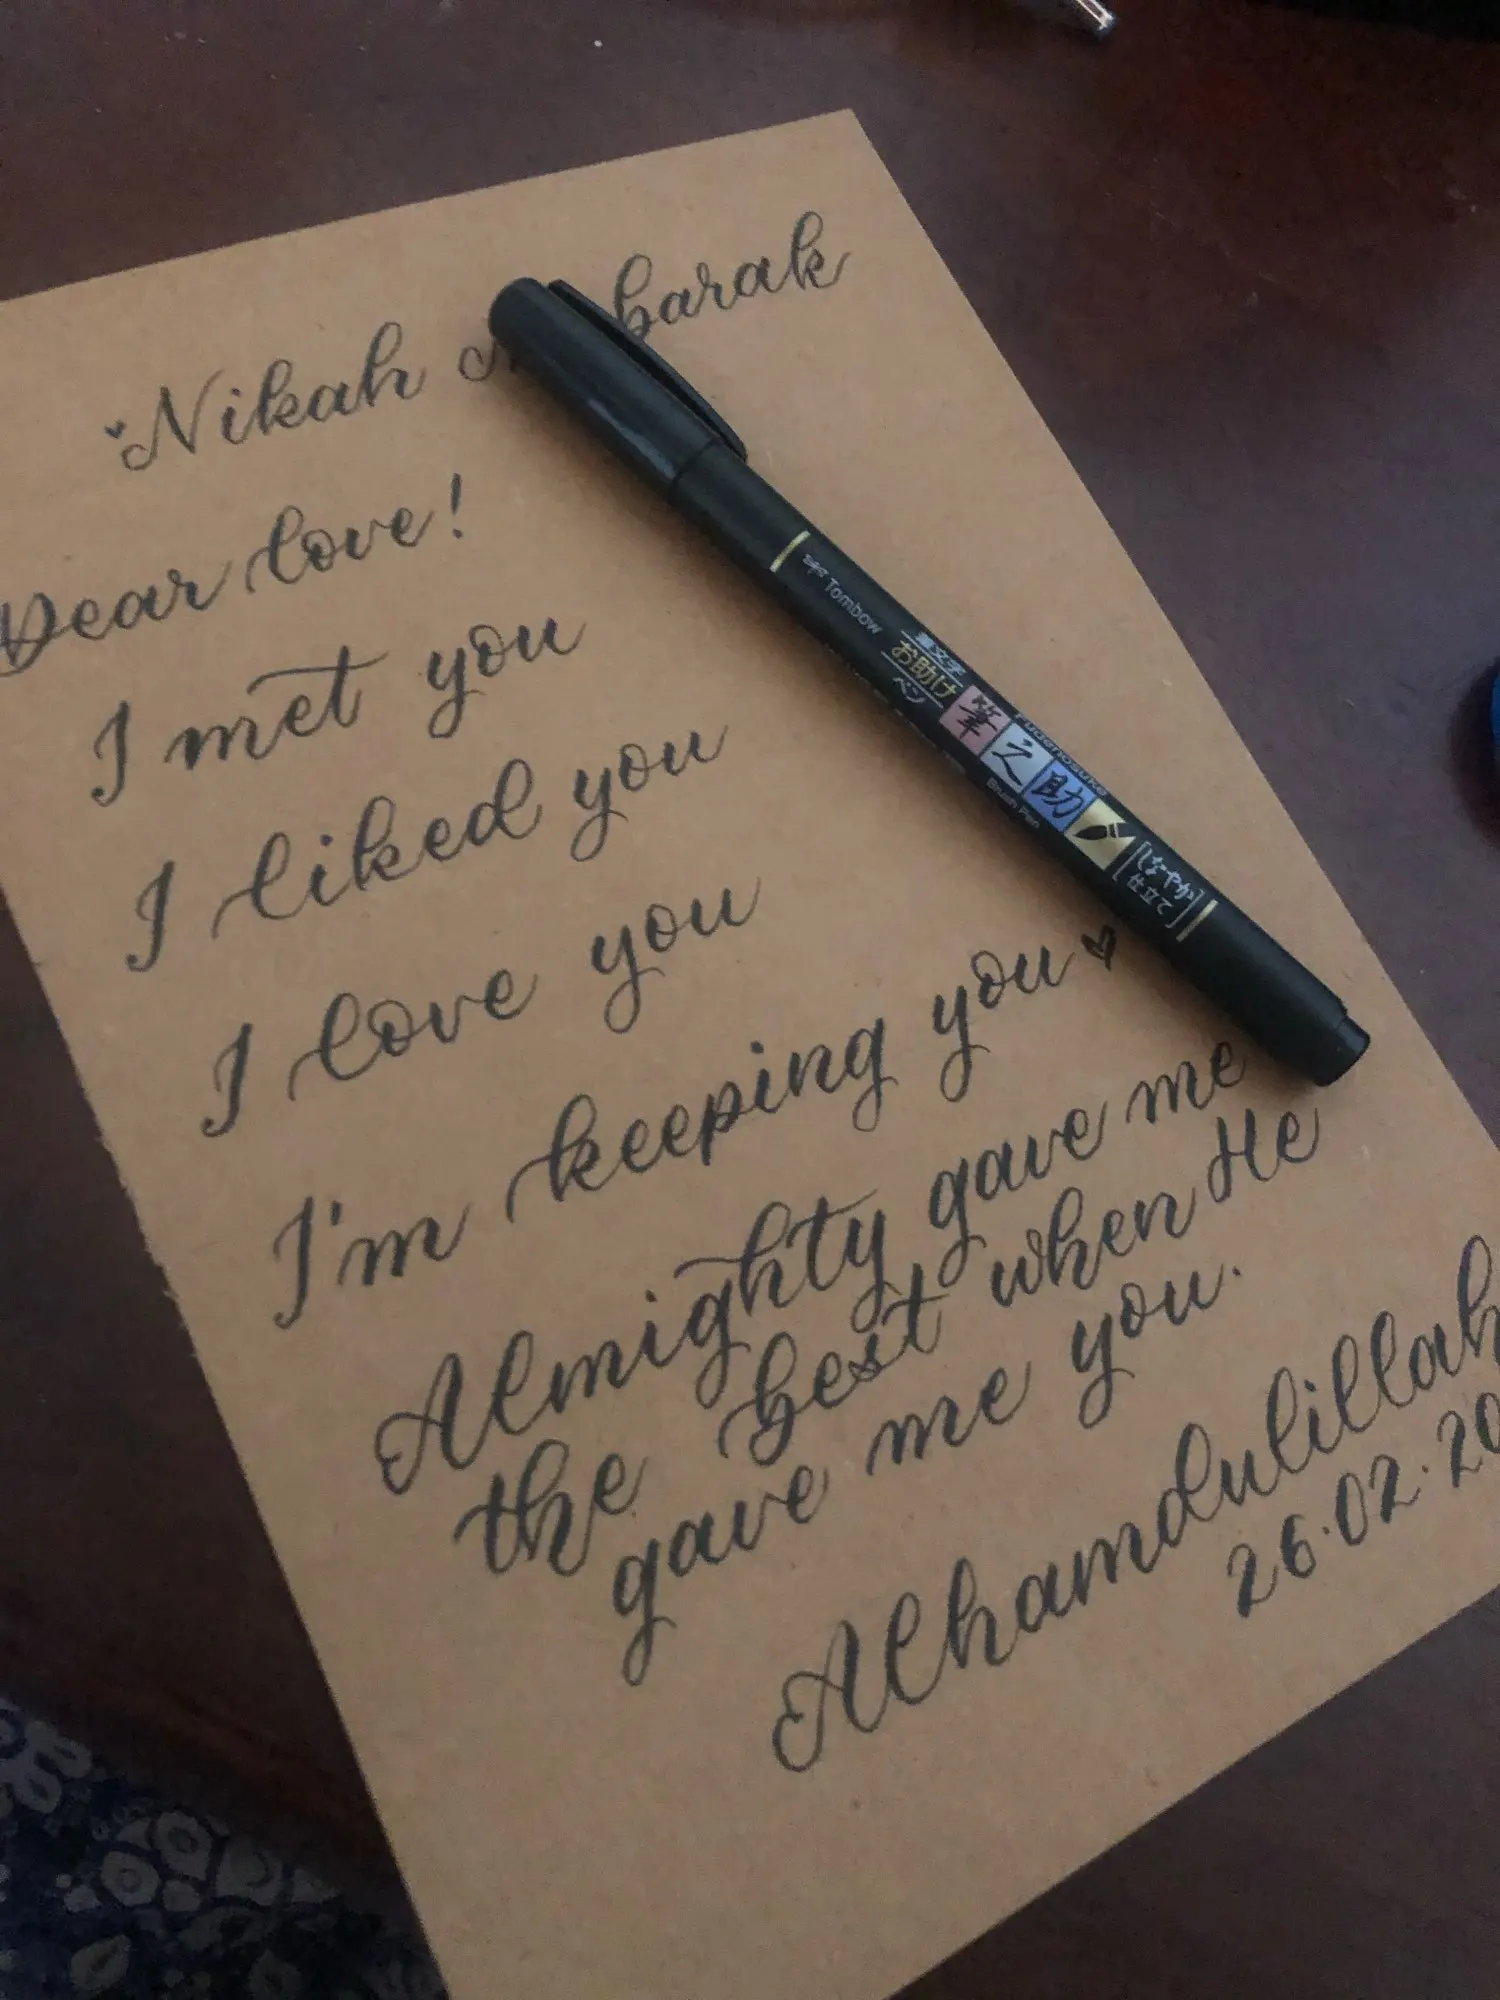 Nikah Mubarak
Dear love!
I met you
I liked you
I love you
I'm keeping you
Almighty gave me
the best when He
gave me you.
Alhamdulillah
26.02.20
Tombow
筆文字
お助け
ペン
筆之助
Fudenosuke
Brush Pen
しなやか
仕立て